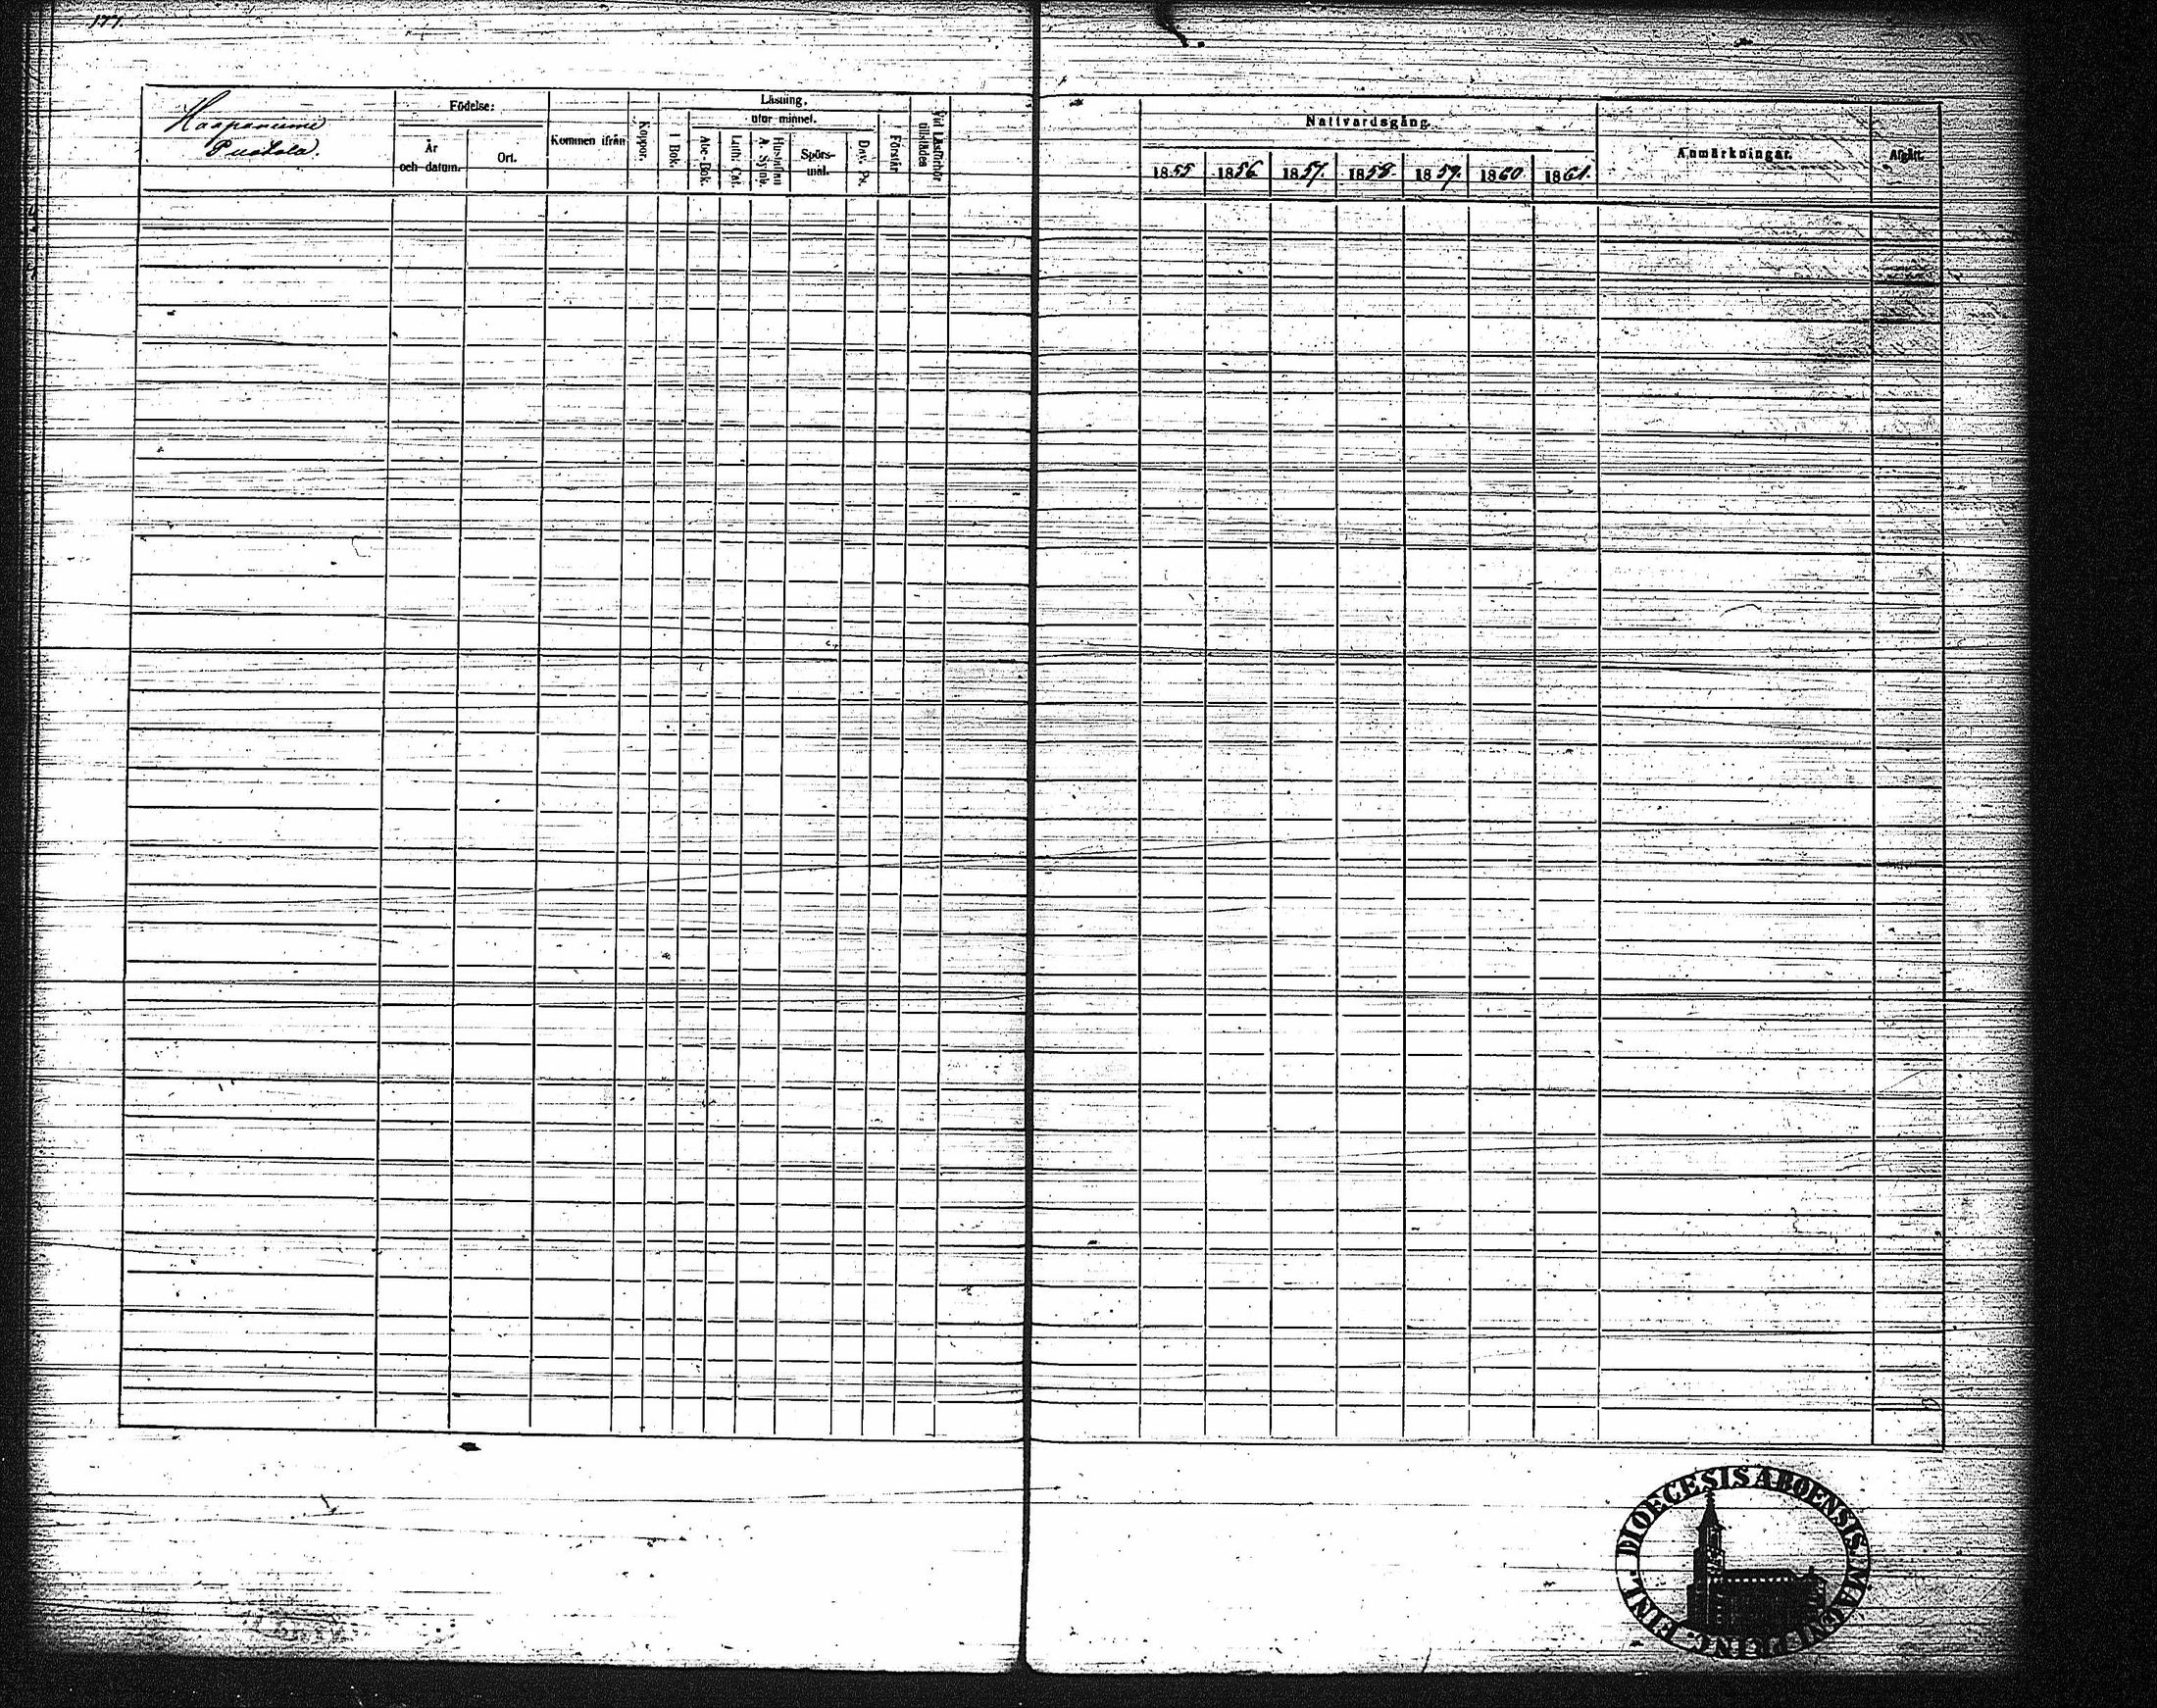 177.
Haapaniemi
Puostola.
Födelse:
År
och datum.
Ort.
Kommen ifrån
Koppor.
Läsning,
utur minnet.
I Bok.
Abc-Bok.
Luth: Cat.
Hustaflan
A. Symb.
Spörs-
mål.
Dav. Ps.
Förstår
Vid Läsförhör
tillstädes
Nattvardsgång.
1855 1856 1857. 1858. 1859. 1860 1861.
Anmärkningar.
Afgått.
DIOECESIS ABOENSIS. MAGNI PRINC. FINL.